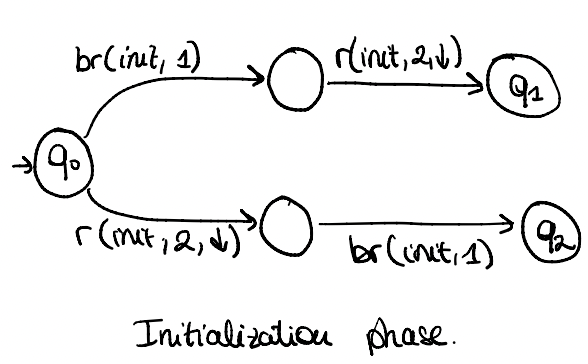 br(init, 1)
r(init, 2, ↓)
q1
q0
r(init, 2, ↓)
br(init, 1)
q2
Initialization phase.